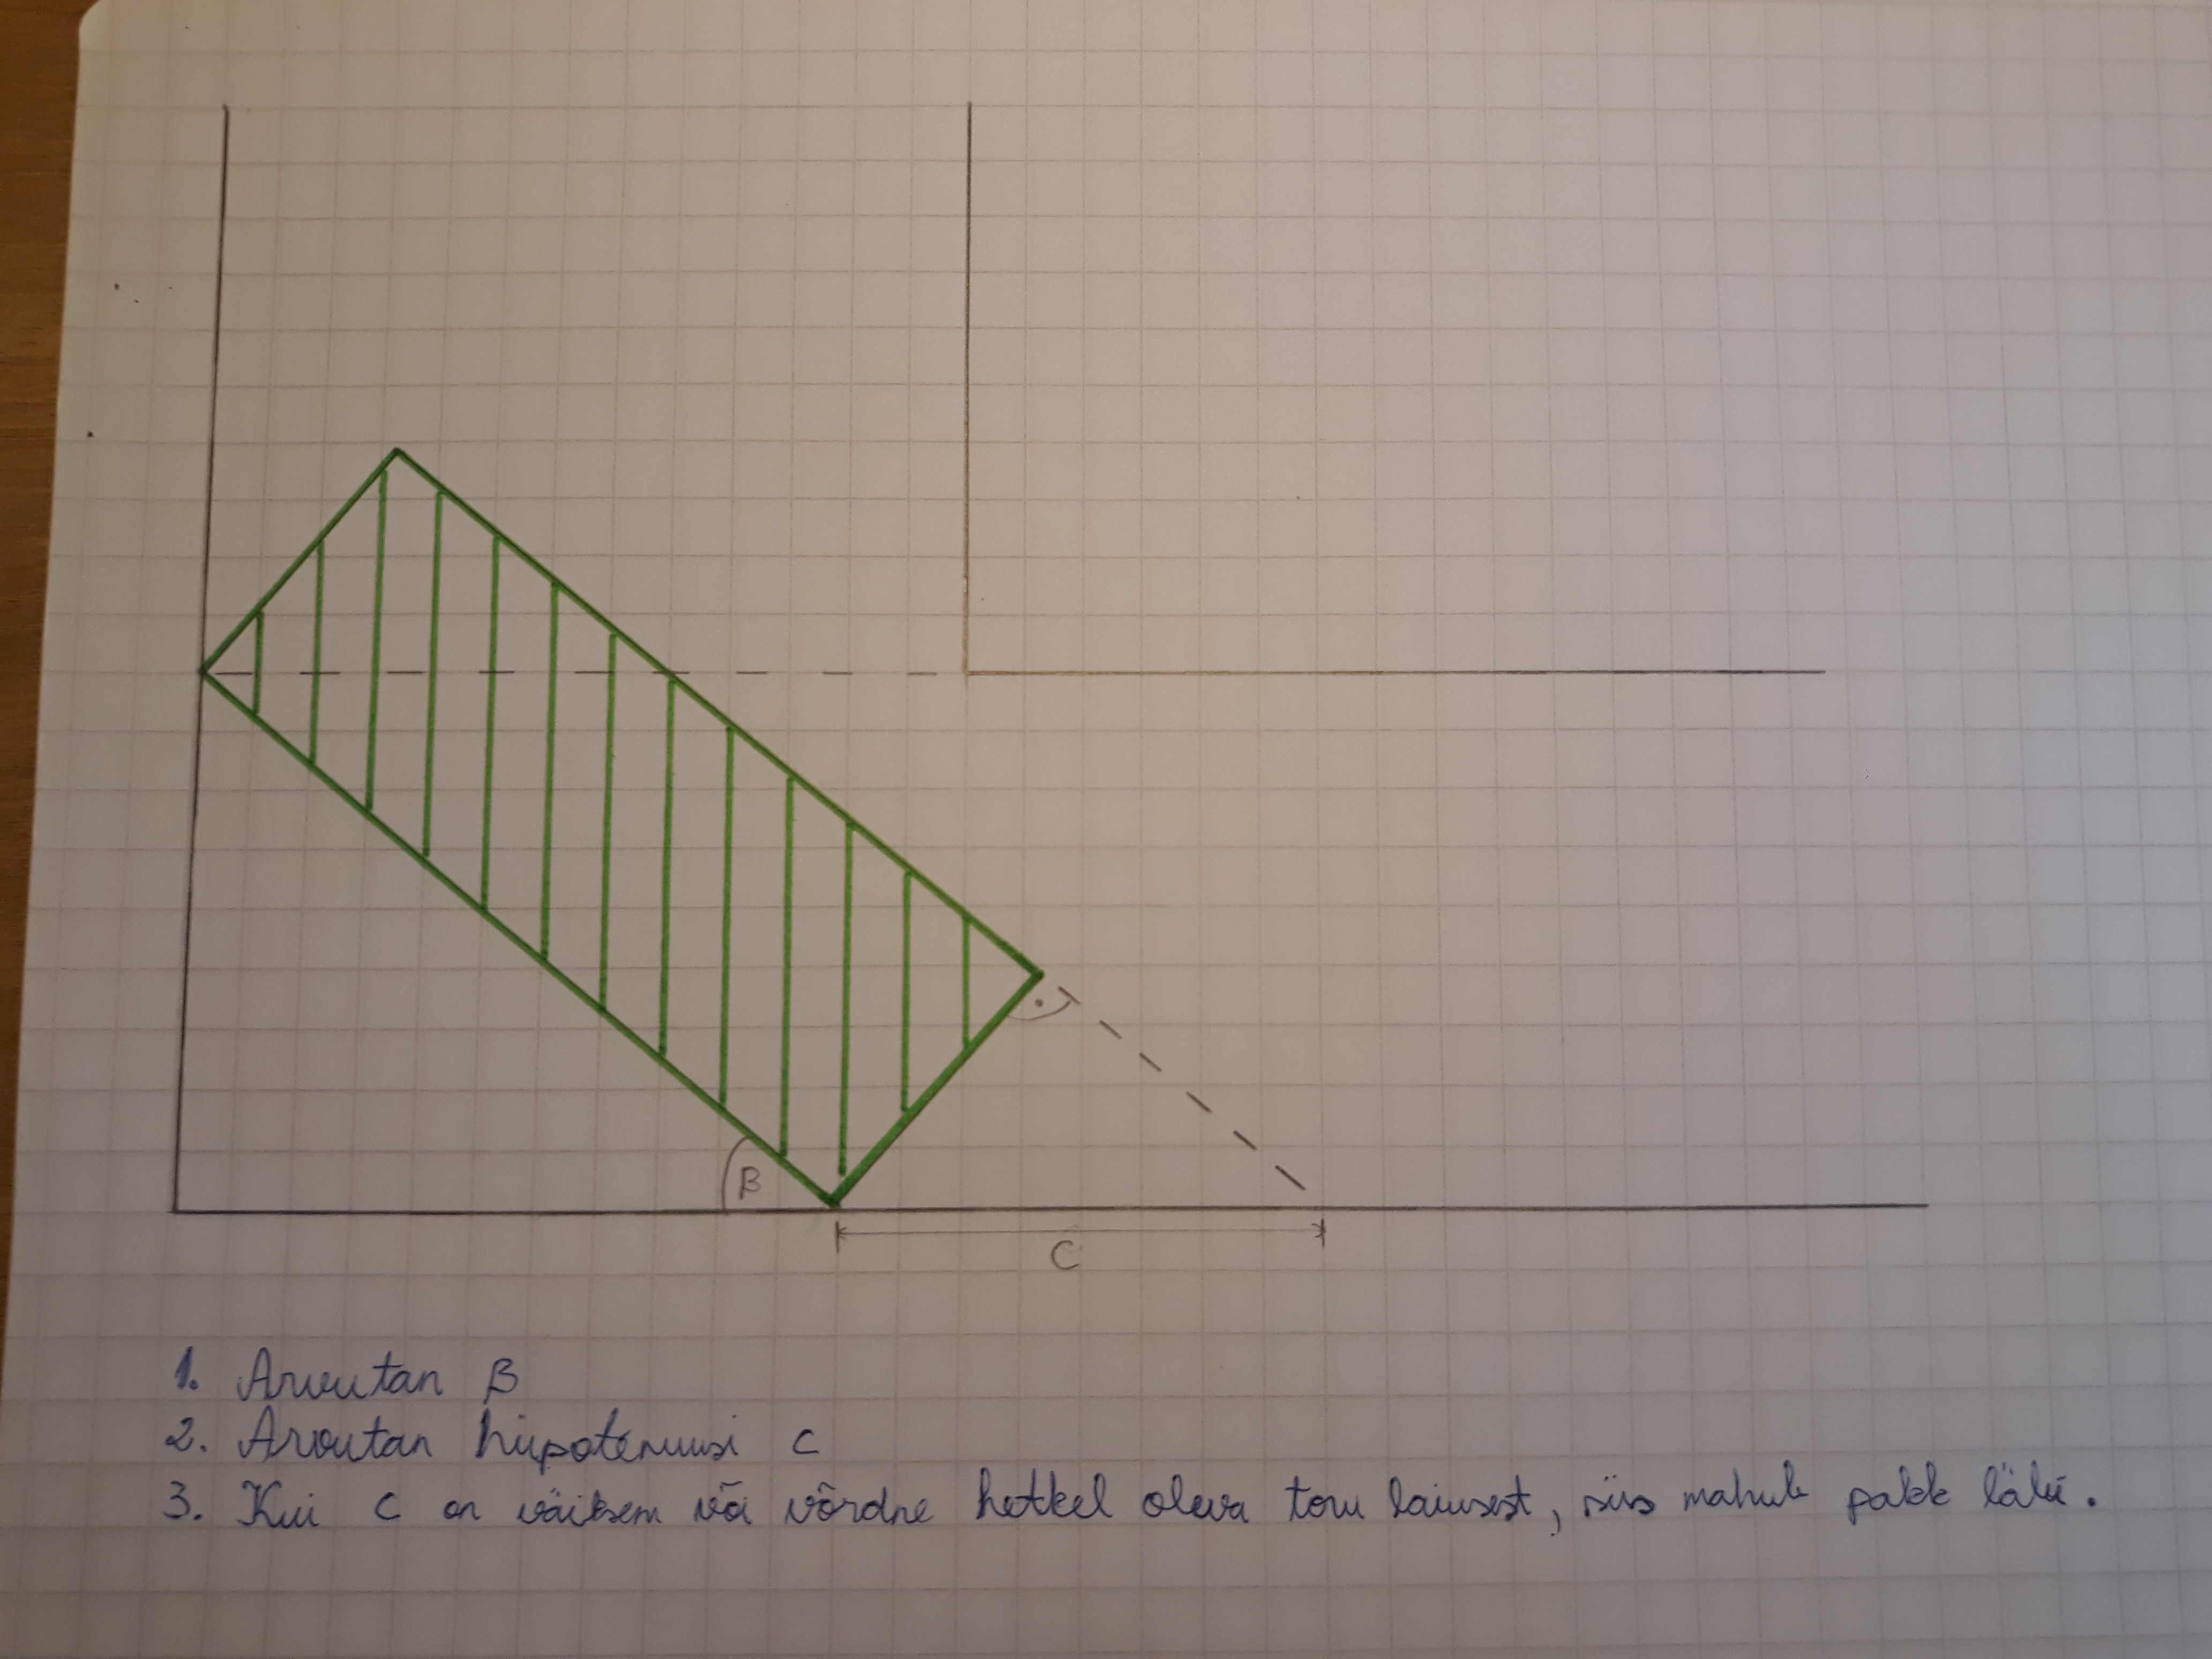 B
C
1. Arvutan β
2. Arvutan hüpotenuusi c
3. Kui c on väiksem või võrdne hetkel oleva toru laiusest, siis mahub pakk läbi.